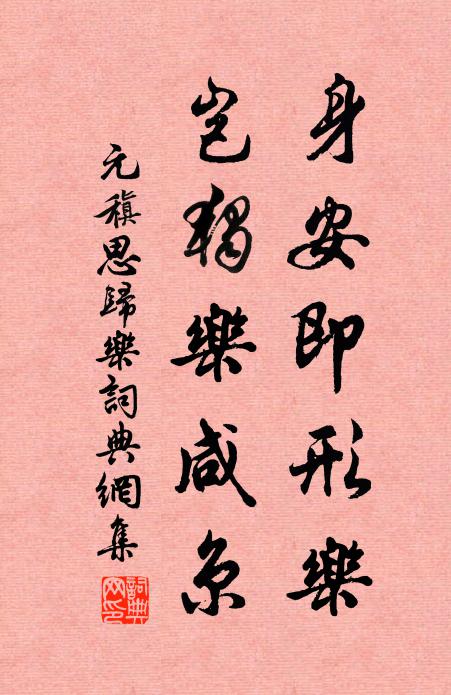 身安即形樂
豈獨樂咸京
元稹思歸樂詞典網集
詞典
网印